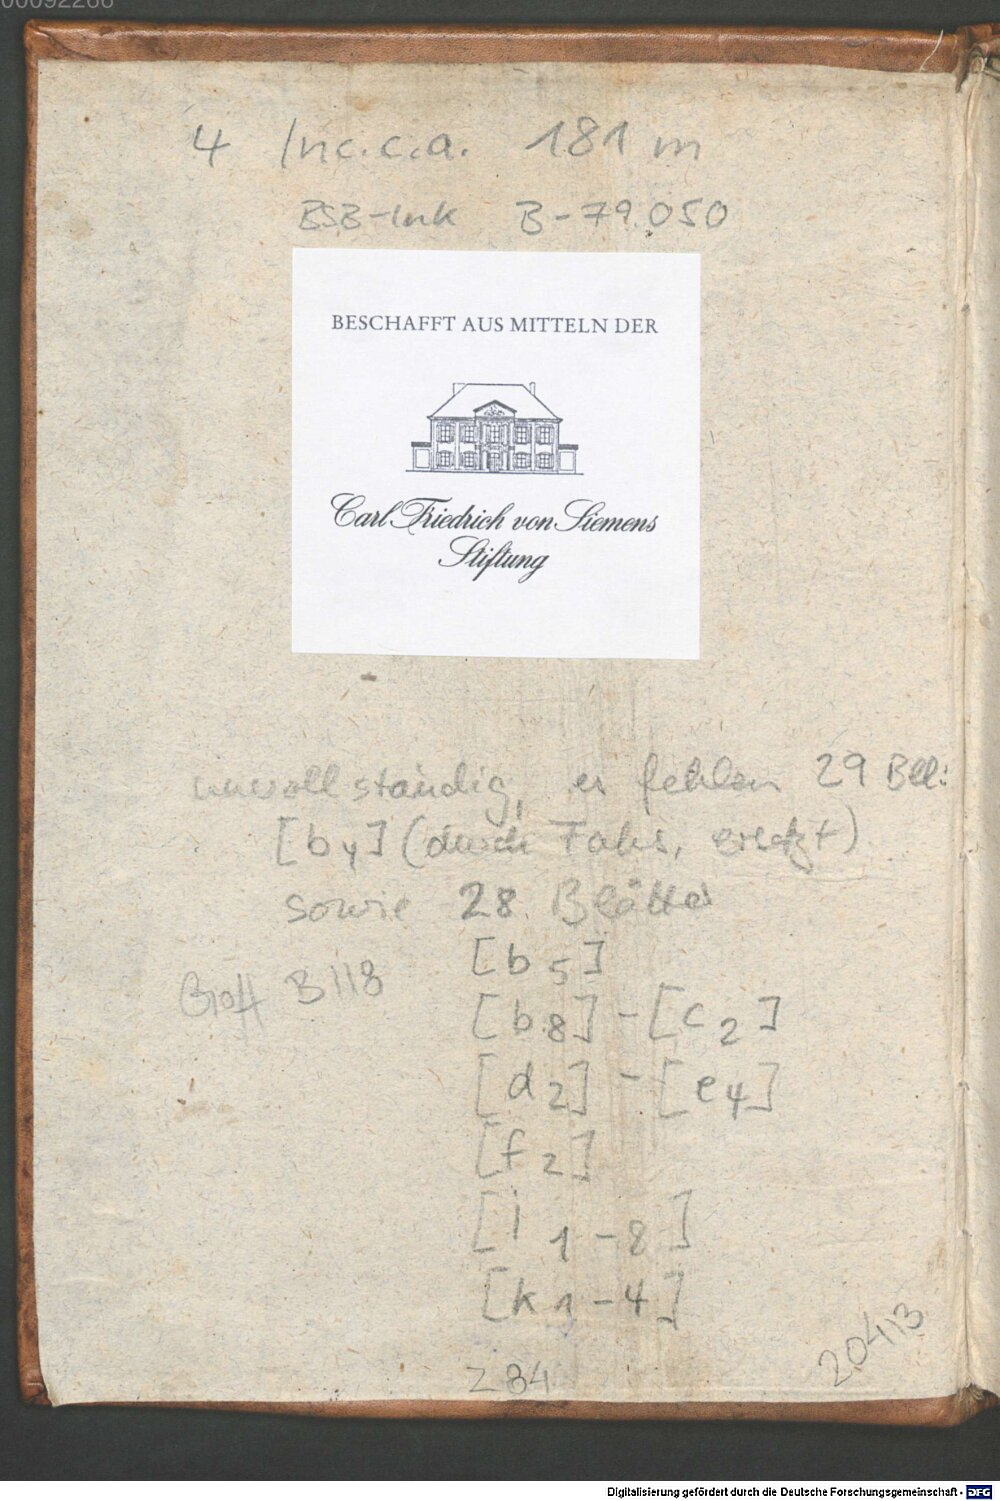 00092266
4 Inc.c.a. 181 m
BSB-Ink B-79.050
BESCHAFFT AUS MITTELN DER
Carl Friedrich von Siemens
Stiftung
unvollständig, es fehlen 29 Bll:
[b4] (durch Faks. ersetzt)
sowie 28 Blätter
[b5]
Goff B118
[b8] - [c2]
[d2] - [e4]
[f2]
[i 1-8]
[k1-4]
Z 84
20413
Digitalisierung gefördert durch die Deutsche Forschungsgemeinschaft - DFG